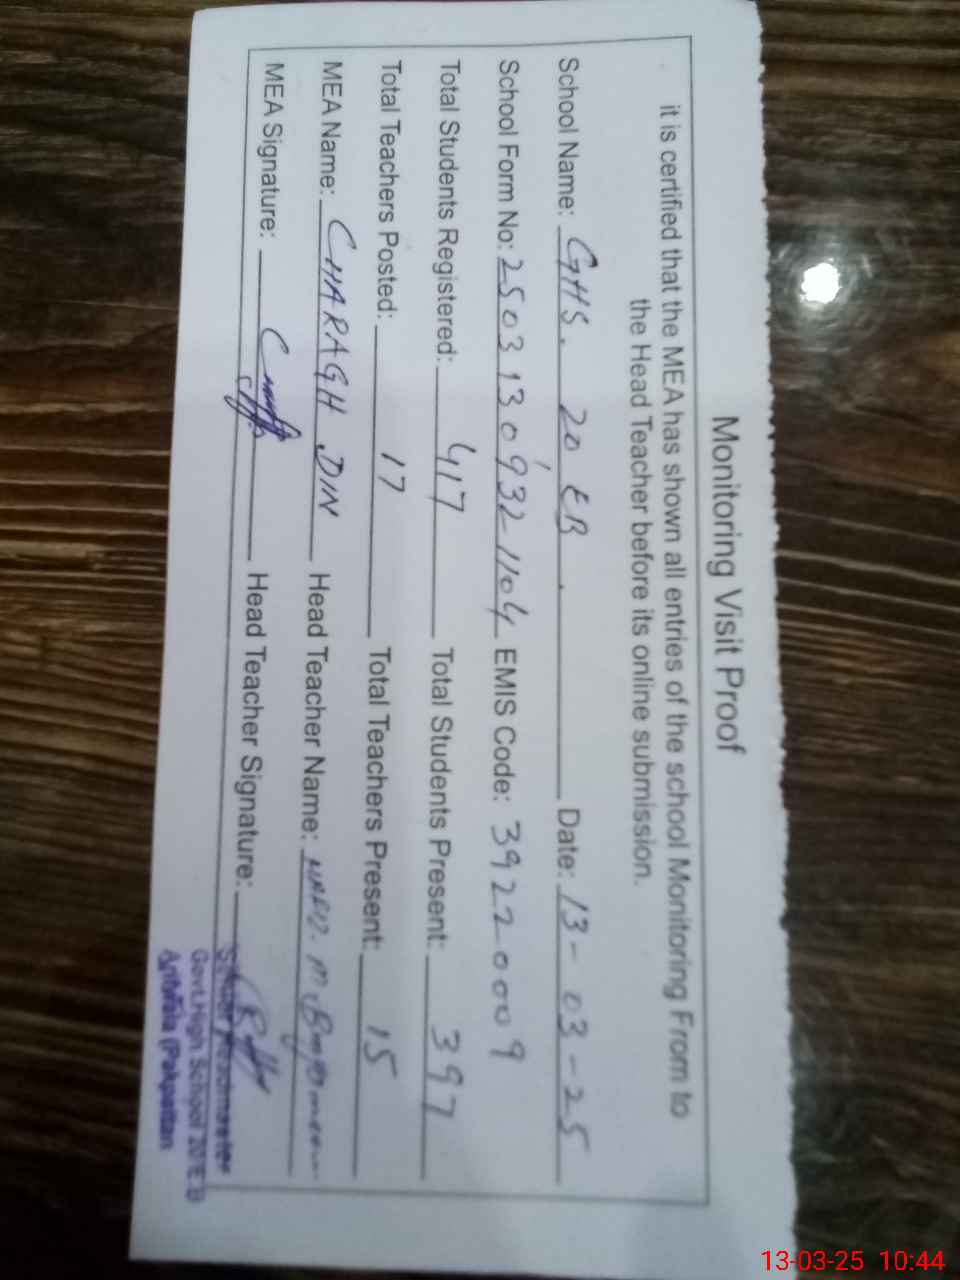 Monitoring Visit Proof
it is certified that the MEA has shown all entries of the school Monitoring From to
the Head Teacher before its online submission.
School Name: GHS. 20 EB. Date: 13-03-25
School Form No: 25031309321104 EMIS Code: 39220009
Total Students Registered: 417 Total Students Present: 397
Total Teachers Posted: 17 Total Teachers Present: 15
MEA Name: CHARAGH DIN Head Teacher Name: HAFIZ. M.
MEA Signature: Head Teacher Signature:
Senior Headmaster
Govt.High School 20/E.B
(Pakpattan
13-03-25 10:44